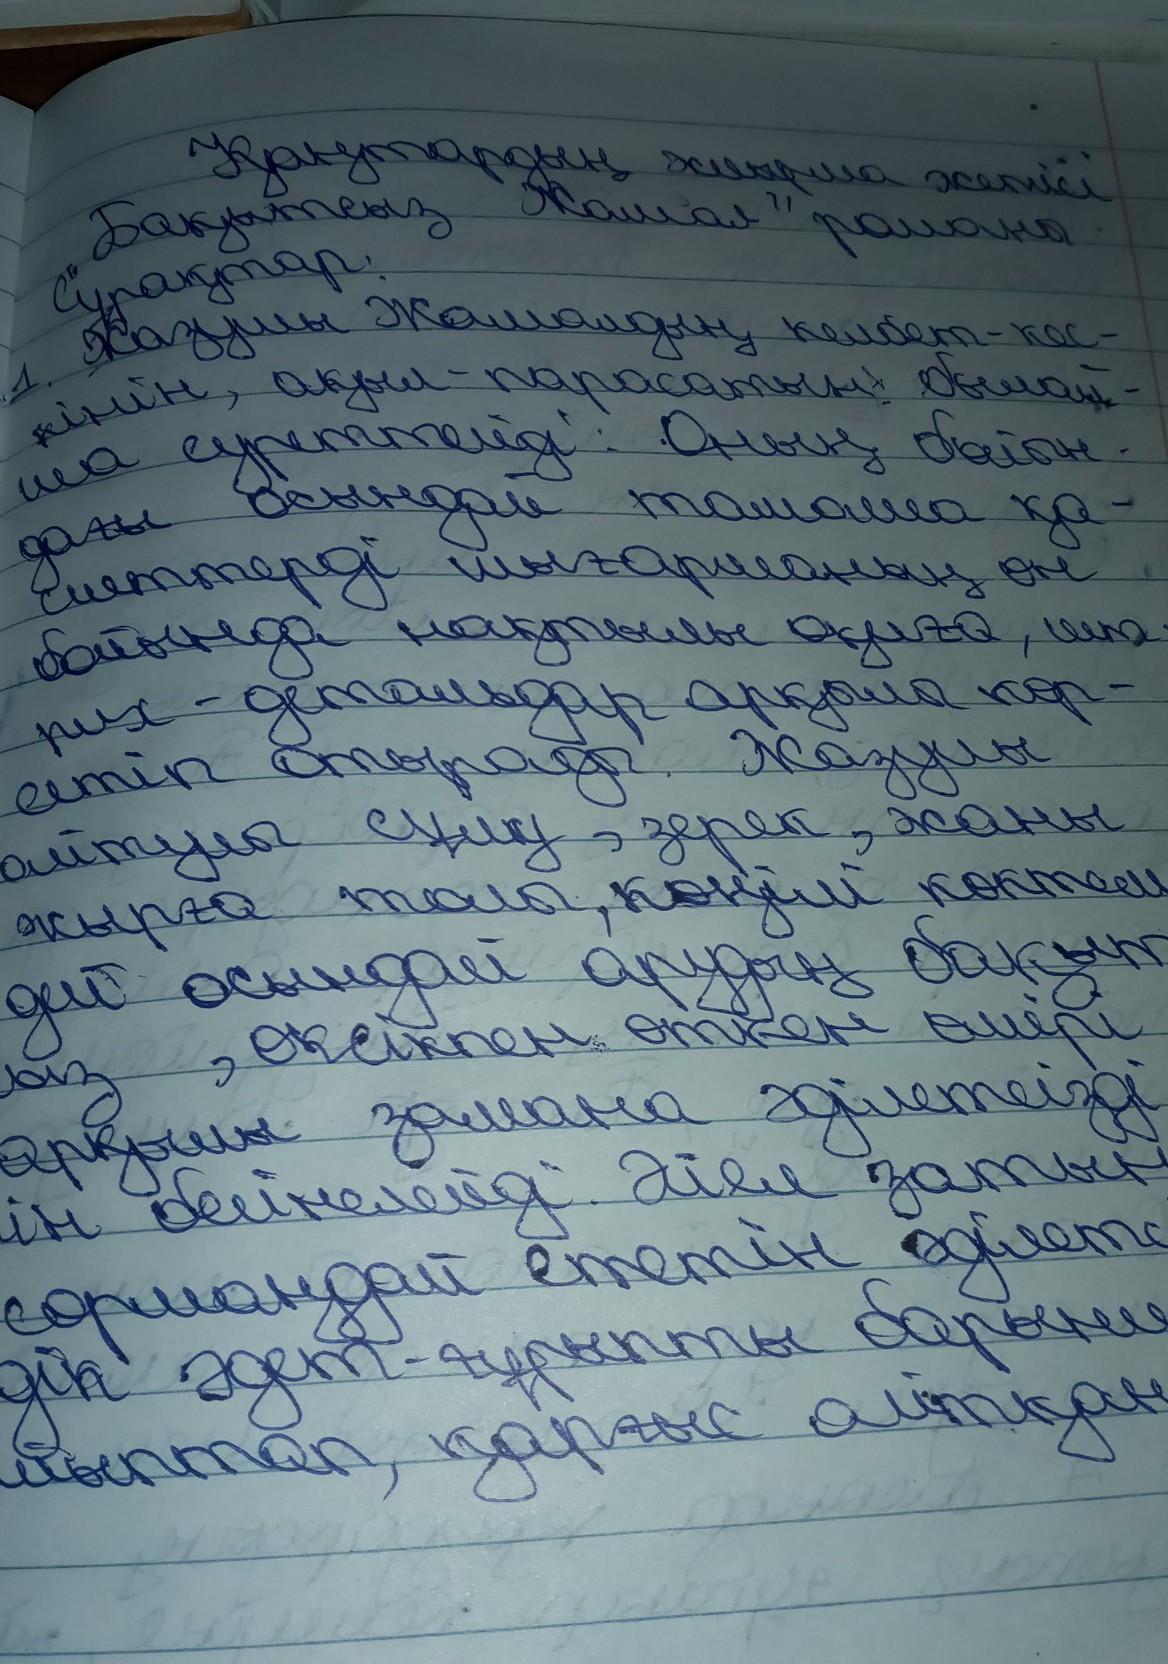 Қаңтардың жиырма жетісі
"Бақытсыз Жамал" романы
Сұрақтар:
1. Жазушы Жамалдың келбет-кес-
кінін, ақыл-парасатын былай-
ша суреттейді: Оның бойын-
дағы осындай тамаша қа-
сиеттерді шығарманың өн
бойында нақтылы оқиға, шт-
рих-детальдар арқылы көр-
сетіп отырады. Жазушы
айтулы сұлу, зерек, жаны
жырға толы, көңілі көктем
дей осындай арудың бақыт
сыз, өкікпен өткен өмірі
арқылы замана әділетсізді
ін бейнелейді. Әйел затын
сормаңдай ететін әділетс
дік әдет-ғұрыпты барынш
йыптап, қарғыс айтқан